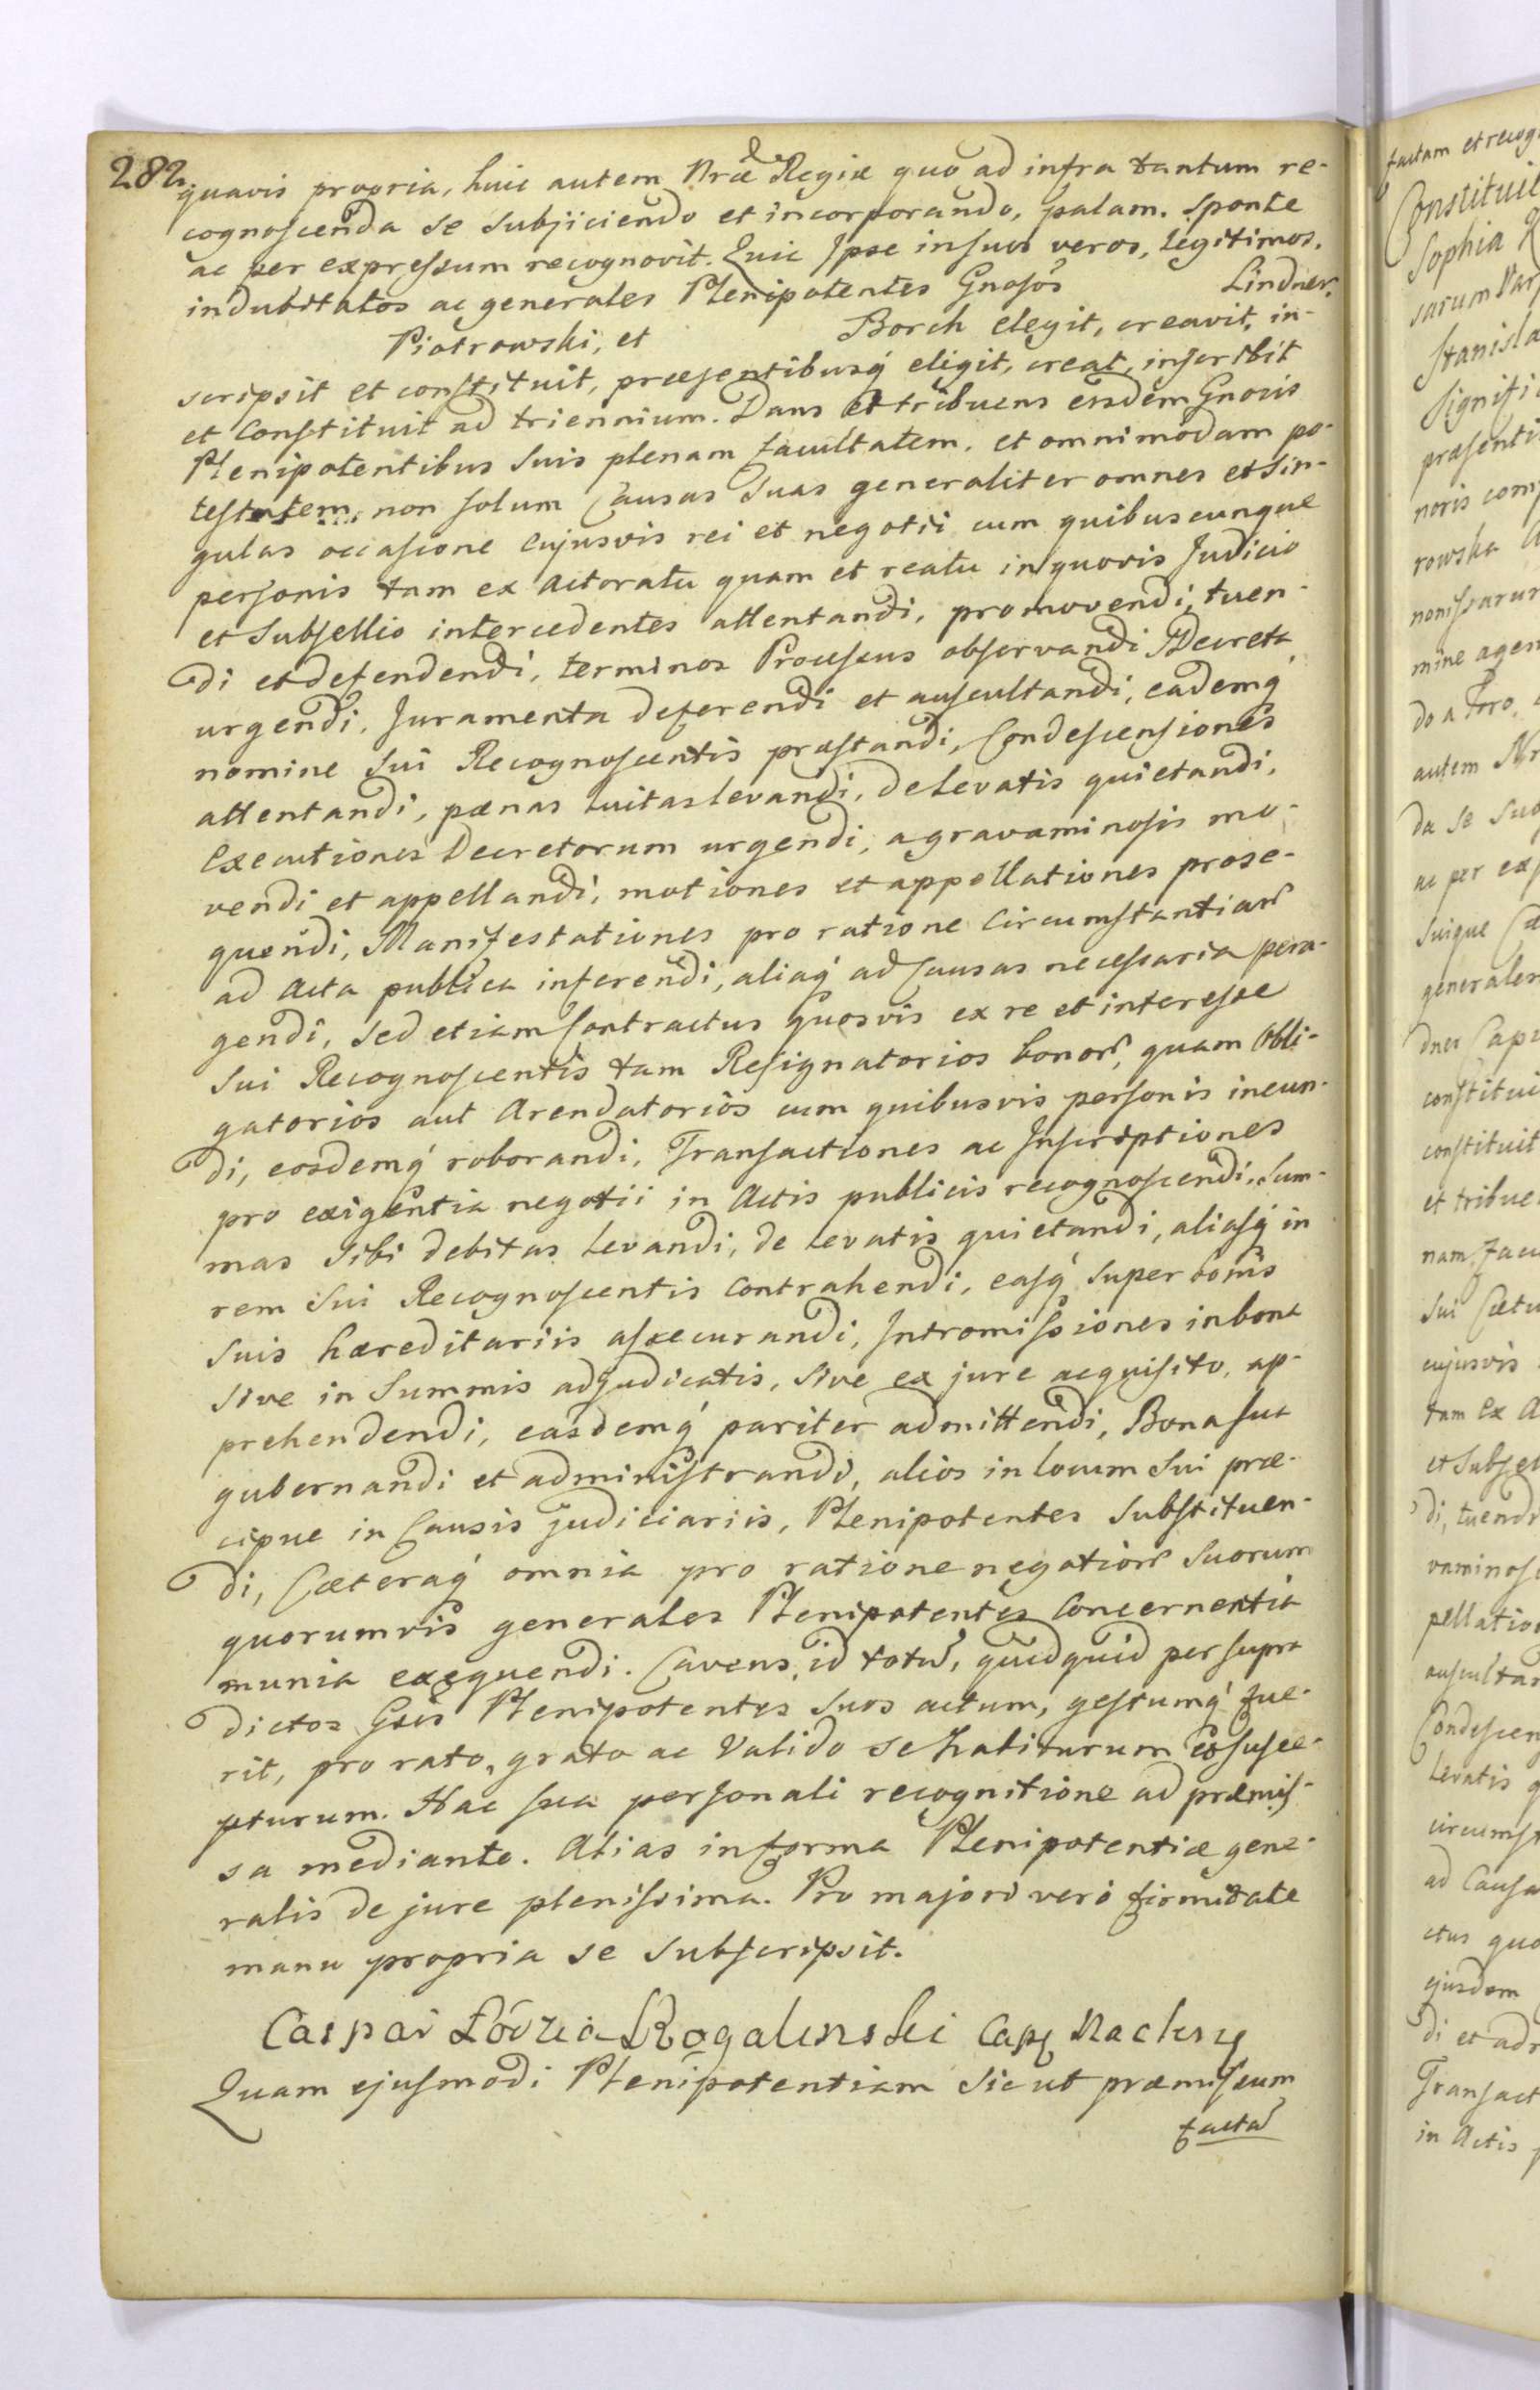 282
quavis propria, huic autem Nræ Regiæ quo ad infra tantum re-
cognoscenda se subjiciendo et incorporando, palam, sponte
ac per expressum recognovit. Quic Ipse in suos veros, legitimos,
indubitatos ac generales Plenipotentes Gnosos Lindner,
Piotrowski, et Borch elegit, creavit, in-
scripsit et constituit, præsentibusq́ eligit, creat, inscribit
et Constituit ad triennium. Dans et tribuens eisdem Gnosis
Plenipotentibus Suis plenam facultatem, et omnimodam po-
testatem, non solum Causas Suas generaliter omnes et Sin-
gulas occasione cujusvis rei et negotii cum quibuscunque
personis tam ex Actoratu quam et reatu in quovis Judicio
et Subsellio intercedentes attentandi, promovendi, tuen-
di et defendendi, terminos Processus observandi Decreta
urgendi, Juramenta deferendi et auscultandi, eademq́
nomine Sui Recognoscentis præstandi, Condescensiones
attentandi, pænas luitas levandi, de levatis quietandi,
Executiones Decretorum urgendi, a gravaminosis mo-
vendi et appellandi, motiones et appellationes prose-
quendi, Manifestationes pro ratione Circumstantiar̃
ad Acta publica inferendi, aliaq́ ad Causas necessaria pera-
gendi, Sed etiam Contractus quosvis ex re et interesse
Sui Recognoscentis tam Resignatorios bonor̃, quam Obli-
gatorios aut Arendatorios cum quibusvis personis ineun-
di, eosdemq́ roborandi, Transactiones ac Inscriptiones
pro exigentia negotii in Actis publicis recognoscendi, Sum-
mas Sibi debitas levandi, de levatis quietandi, aliasq́ in
rem Sui Recognoscentis Contrahendi, easq́ super bonis
Suis hæreditariis assecurandi, Intromissiones in bona
Sive in Summis adjudicatis, Sive ex jure acquisito, ap-
prehendendi, easdemq́ pariter admittendi, Bona sua
gubernandi et administrandi, alios in locum Sui præ-
cipue in Causis judiciariis, Plenipotentes Substituen-
di, Cæteraq́ omnia pro ratione negotior̃ Suorum
quorumvis generales Plenipotentes Concernentia
munia exequendi. Cavens, id totũ, quidquid per supra
dictos Gsos Plenipotentes Suos actum, gestumq́ fue-
rit, pro rato, grato ac Valido se habiturum et susce-
pturum. Hac sua personali recognitione ad præmis-
sa mediante. Alias in forma Plenipotentiæ gene-
ralis de jure plenissima. Pro majori vero firmitate
manu propria se Subscripsit.
Caspar Rogalinski Cap
Quam ejusmodi Plenipotentiam Sicut præmissum
factã
factam et recog
Constituit
Sophia
sarum
Stanisla
Signifi
præsenti
noris com
rowska
nonissarum
mine agen
do a Foro,
autem Nr
da se Su
ac per ex
Suique
generales
dner Cap
constitui
constituit
et tribue
nam, facu
Sui Cætu
cujusvis
tam ex A
et Subsel
di, tuendi
vaminos
pellatio
auscultan
Condescen
levatis q
circumst
ad Causa
ctus quo
ejusdem
di et ad
Transact
in Actis p